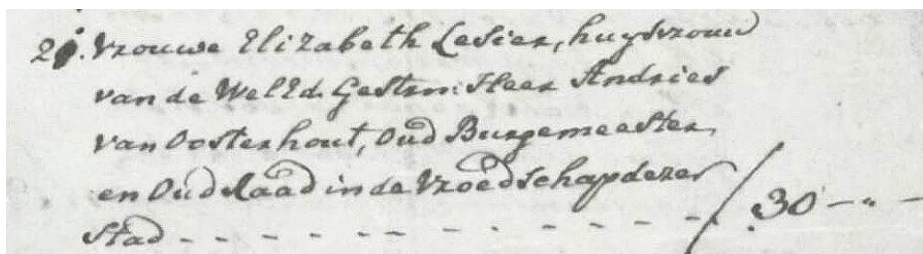 21. Vrouwe Elizabeth Lesier, huysvrouw
van de Wel Ed. Gestrn: Heer Andries
van Oosterhout, Oud Burgemeester,
en Oud Raad in de Vroedschap dezer
Stad - - - - - - - - - - / 30 - „ -